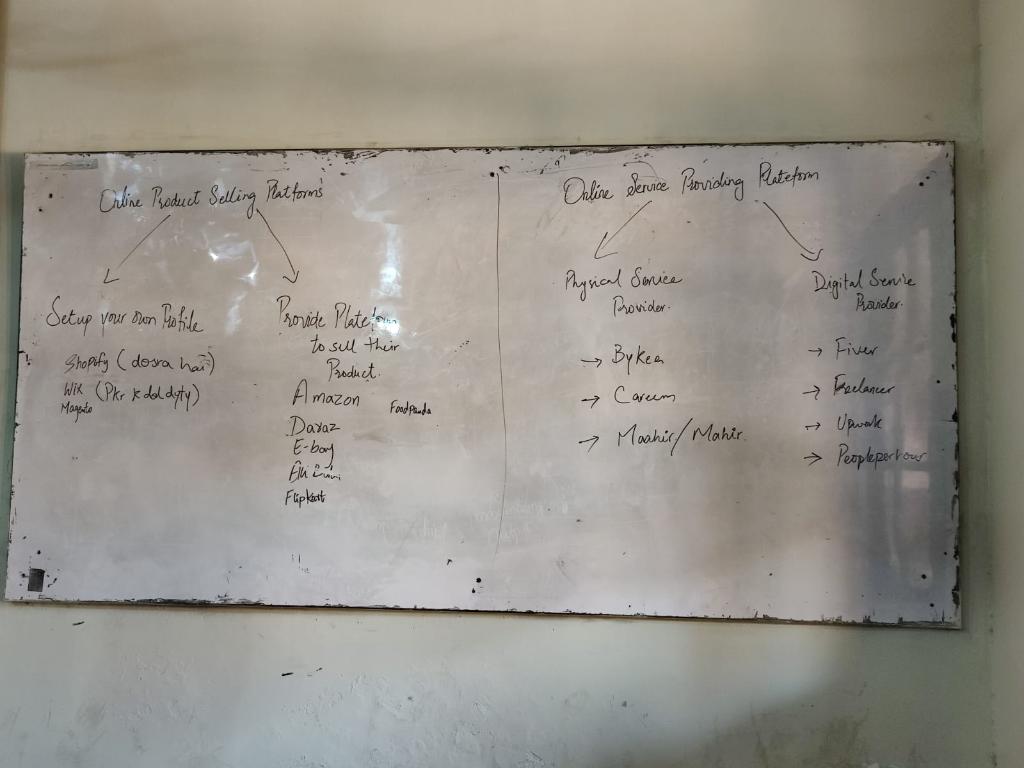 Online Product Selling Platforms
Setup your own Profile
Shopify (dosra hai)
Wix (Pkr
Magento
Provide Plateform
to sell their
Product.
Amazon
Foodpanda
Daraz
E-bay
Flipkart
Online Service Providing Plateform
Physical Service
Provider.
→ Bykea
→ Careem
→ Maahir/Mahir.
Digital Service
Provider.
→ Fiver
→ Freelancer
→ Upwork
→ Peopleperhour